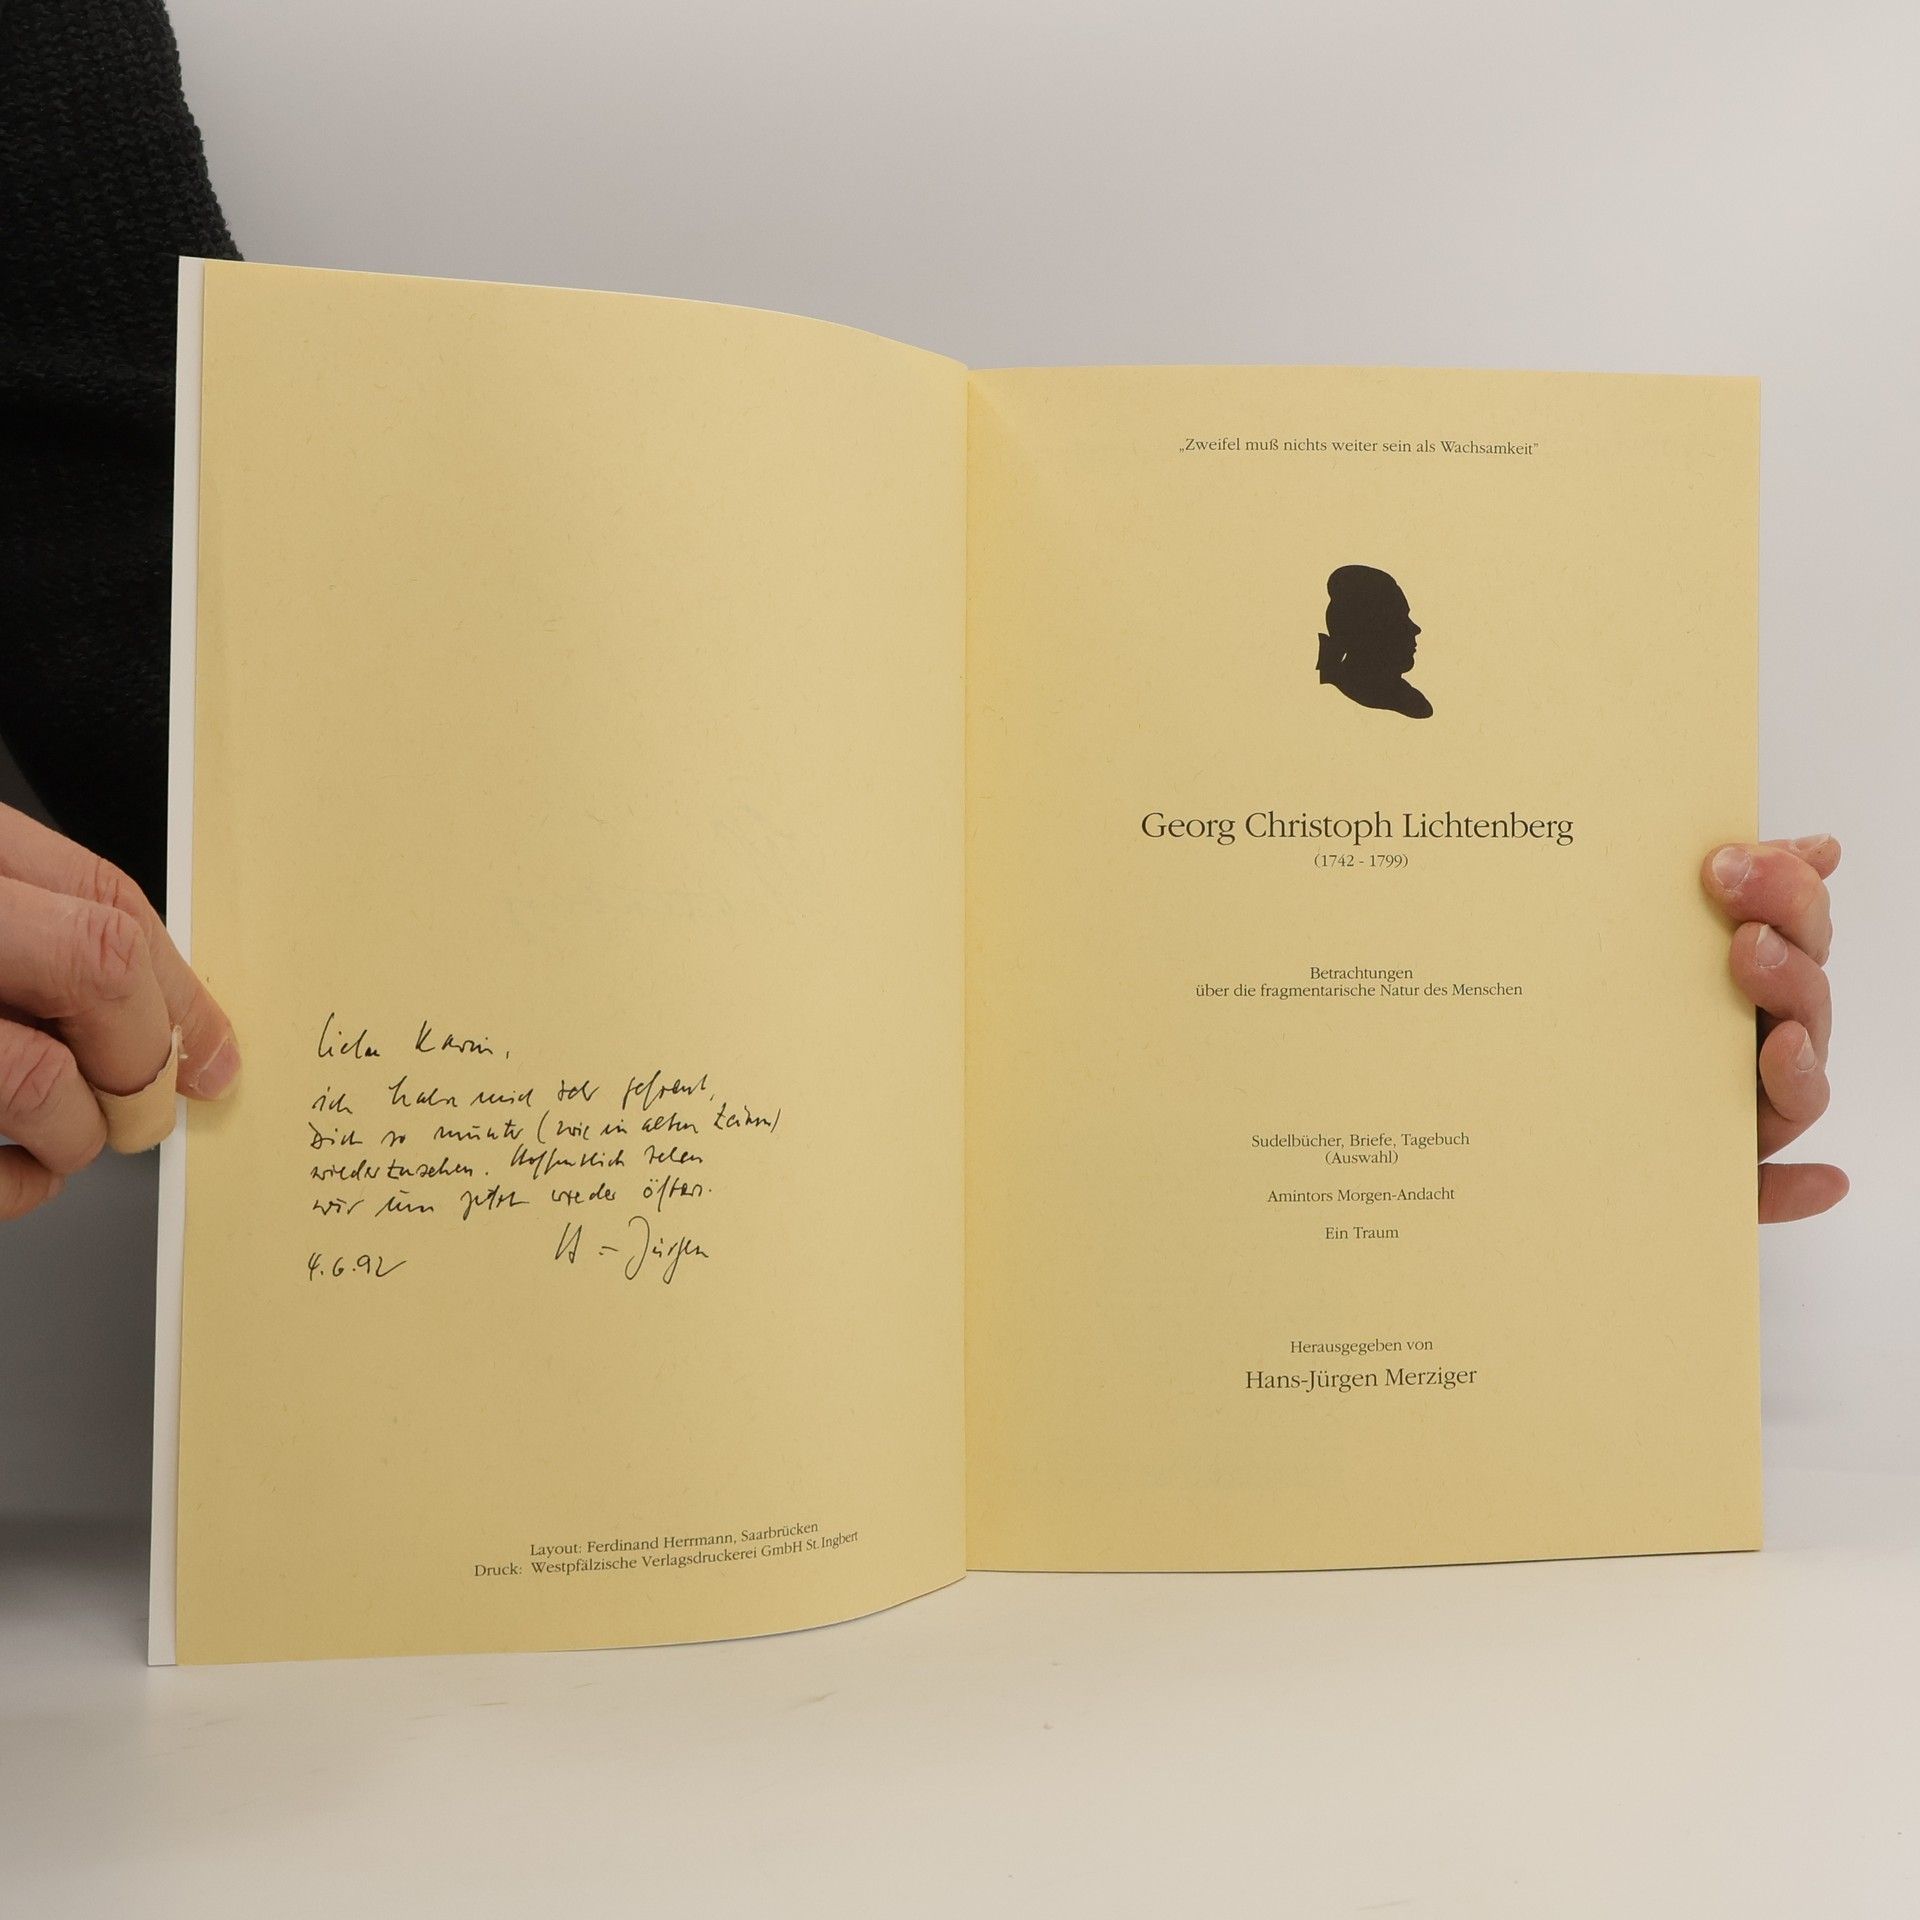 Liebe Karin,
ich habe mich sehr gefreut,
Dich so munter (wie in alten Zeiten)
wiederzusehen. Hoffentlich sehen
wir uns jetzt wieder öfters.
4.6.92 H-Jürgen
Layout: Ferdinand Herrmann, Saarbrücken
Druck: Westpfälzische Verlagsdruckerei GmbH St. Ingbert
„Zweifel muß nichts weiter sein als Wachsamkeit"
Georg Christoph Lichtenberg
(1742 - 1799)
Betrachtungen
über die fragmentarische Natur des Menschen
Sudelbücher, Briefe, Tagebuch
(Auswahl)
Amintors Morgen-Andacht
Ein Traum
Herausgegeben von
Hans-Jürgen Merziger